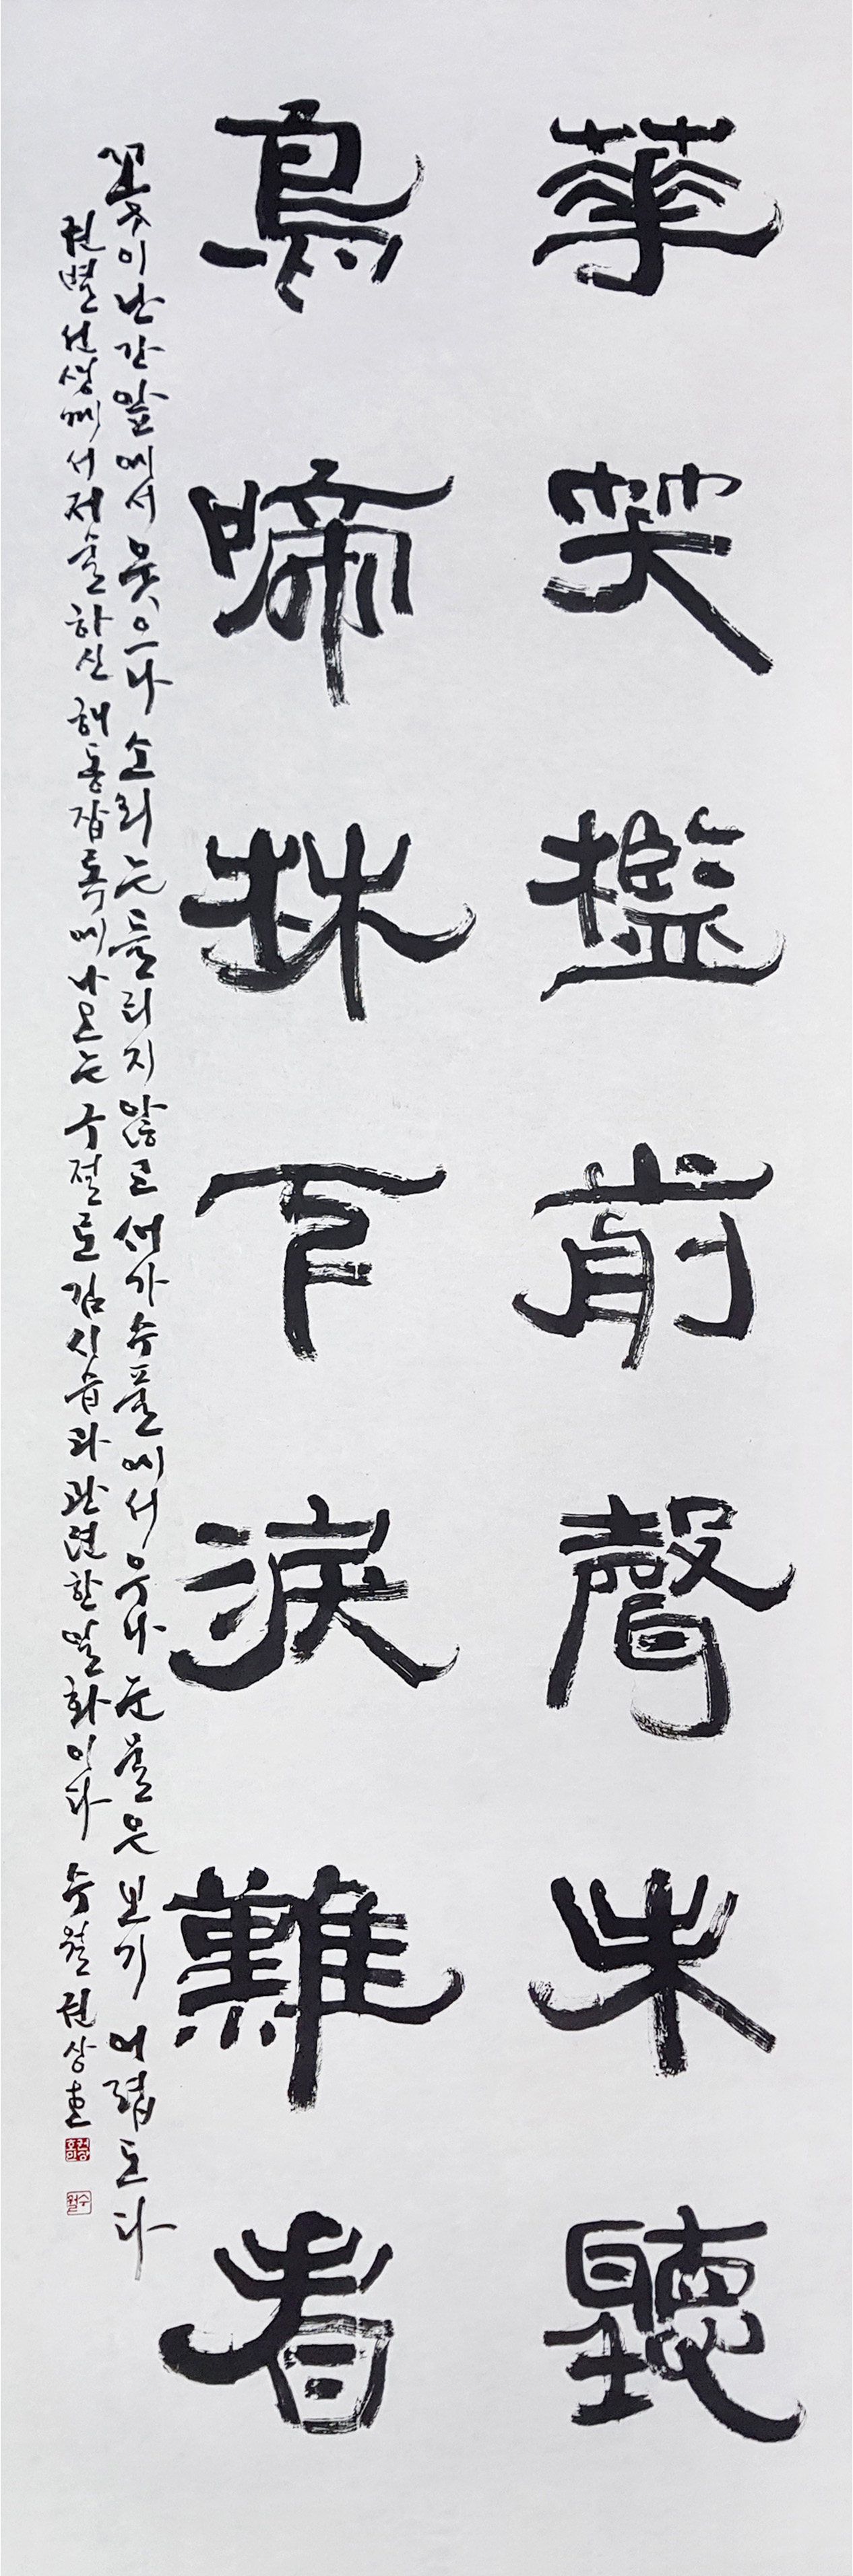 華笑檻前聲未聽
鳥啼林下淚難看
꽃이 난간 앞에서 웃으나 소리는 들리지 않고 새가 수풀에서 우나 눈물은 보기 어렵도다
권별 선생께서 저술하신 해동잡록에 나오는 구절로 김시습과 관련한 일화이다 수월 권상호